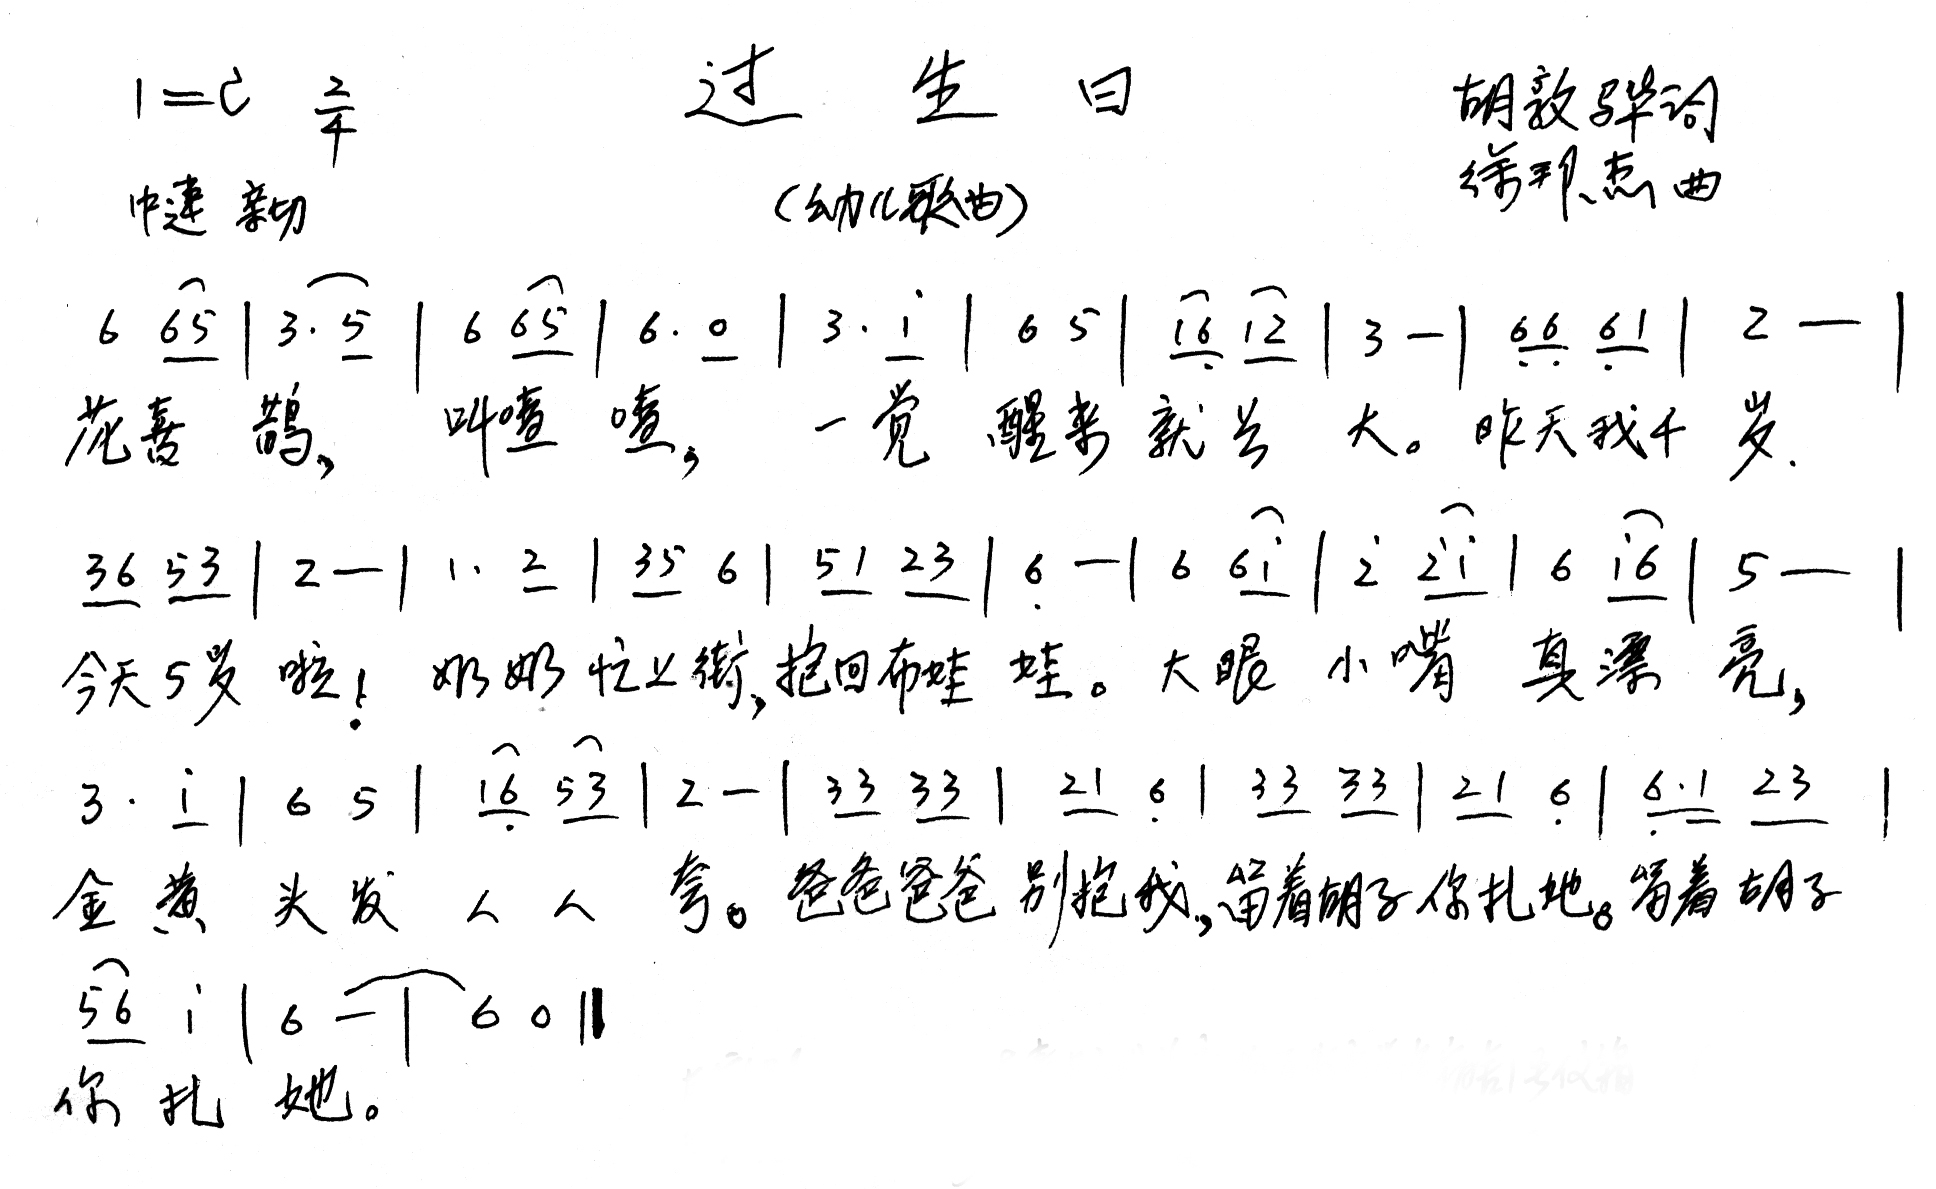 1=C 2/4 过生日 胡敦骅词
中速 亲切 (幼儿歌曲) 徐邦杰曲
6 65 | 3. 5 | 6 65 | 6. 0 | 3. i | 6 5 | 16 12 | 3 — | 66 61 | 2 — |
花喜 鹊, 叫喳 喳, 一觉 醒来就长 大。昨天我4岁.
36 53 | 2 — | 1. 2 | 35 6 | 51 23 | 6 — | 6 6i | 2 2i | 6 i6 | 5 — |
今天5岁 啦! 奶奶忙上街,抱回布娃 娃。大眼 小嘴 真漂 亮,
3. i | 6 5 | 16 53 | 2 — | 33 33 | 21 6 | 33 33 | 21 6 | 6.1 23 |
金黄 头发 人人 夸。爸爸爸爸别抱我,留着胡子你扎她。留着胡子
56 i | 6 — | 6 0 ‖
你扎 她。